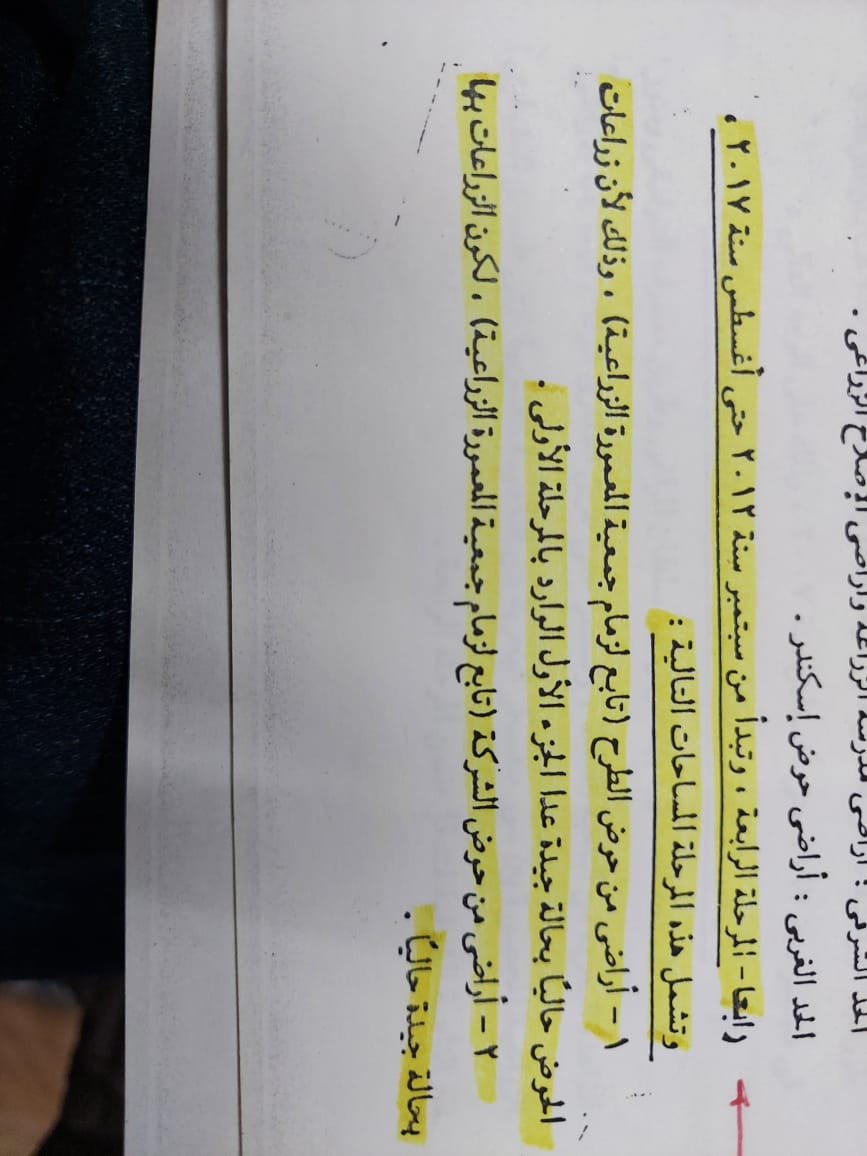 الحد الشرقى : أراضى مدرسة الزراعة وأراضى الإصلاح الزراعى .
الحد الغربى : أراضى حوض إسكندر .
رابعا - المرحلة الرابعة ، وتبدأ من سبتمبر سنة ٢٠١٢ حتى أغسطس سنة ٢٠١٧ ،
وتشمل هذه المرحلة المساحات التالية :
١ - أراضى من حوض الطرح (تابع لزمام جمعية المعمورة الزراعية) ، وذلك لأن زراعات
الحوض حاليًا بحالة جيدة عدا الجزء الأول الوارد بالمرحلة الأولى .
٢ - أراضى من حوض الشركة (تابع لزمام جمعية المعمورة الزراعية) ، لكون الزراعات بها
بحالة جيدة حاليًا .